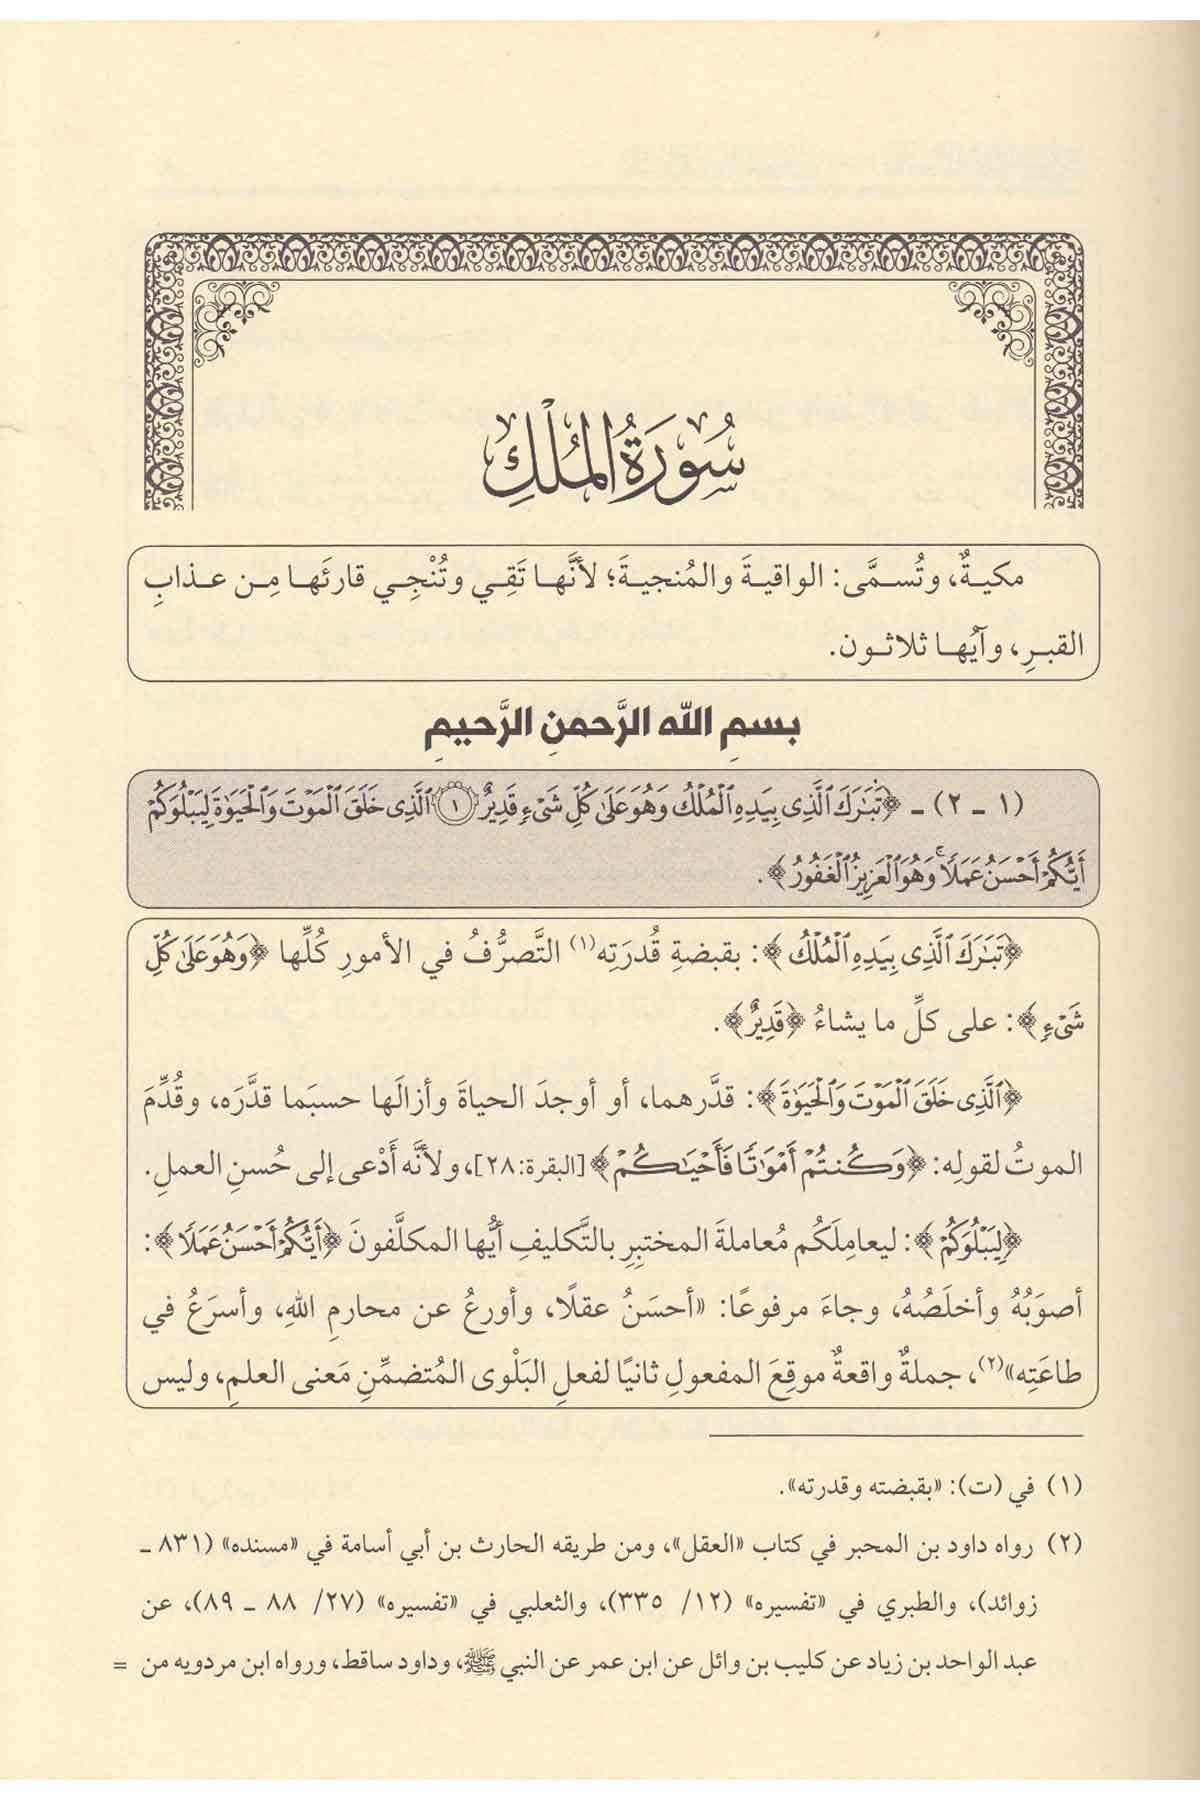 سُورَةُ المُلْكِ
مكيةٌ، وتُسمَّى: الواقيةَ والمُنجيةَ؛ لأنَّها تَقِي وتُنْجِي قارئَها مِن عذابِ
القبرِ، وآيُها ثلاثون.
بسمِ الله الرَّحمنِ الرَّحيمِ
(١ - ٢) - ﴿تَبَٰرَكَ ٱلَّذِى بِيَدِهِ ٱلْمُلْكُ وَهُوَ عَلَىٰ كُلِّ شَىْءٍ قَدِيرٌ ١ ٱلَّذِى خَلَقَ ٱلْمَوْتَ وَٱلْحَيَوٰةَ لِيَبْلُوَكُمْ
أَيُّكُمْ أَحْسَنُ عَمَلًا ۚ وَهُوَ ٱلْعَزِيزُ ٱلْغَفُورُ﴾.
﴿تَبَٰرَكَ ٱلَّذِى بِيَدِهِ ٱلْمُلْكُ﴾: بقبضةِ قُدرَتِه(١) التَّصرُّفُ في الأمورِ كُلِّها ﴿وَهُوَ عَلَىٰ كُلِّ
شَىْءٍ﴾: على كلِّ ما يشاءُ ﴿قَدِيرٌ﴾.
﴿ٱلَّذِى خَلَقَ ٱلْمَوْتَ وَٱلْحَيَوٰةَ﴾: قدَّرهما، أو أوجدَ الحياةَ وأزالَها حسبَما قدَّرَه، وقُدِّمَ
الموتُ لقولِه: ﴿وَكُنتُمْ أَمْوَٰتًا فَأَحْيَٰكُمْ﴾ [البقرة:٢٨]، ولأنَّه أَدْعى إلى حُسنِ العملِ.
﴿لِيَبْلُوَكُمْ﴾: ليعامِلَكُم مُعاملةَ المختبِرِ بالتَّكليفِ أيُّها المكلَّفونَ ﴿أَيُّكُمْ أَحْسَنُ عَمَلًا﴾:
أصوَبُهُ وأخلَصُهُ، وجاءَ مرفوعًا: «أحسَنُ عقلًا، وأورعُ عن محارمِ اللهِ، وأسرَعُ في
طاعَتِه»(٢)، جملةٌ واقعةٌ موقِعَ المفعولِ ثانيًا لفعلِ البَلْوى المُتضمِّنِ مَعنى العلمِ، وليس
(١) في (ت): «بقبضته وقدرته».
(٢) رواه داود بن المحبر في كتاب «العقل»، ومن طريقه الحارث بن أبي أسامة في «مسنده» (٨٣١ -
زوائد)، والطبري في «تفسيره» (١٢/ ٣٣٥)، والثعلبي في «تفسيره» (٢٧/ ٨٨ - ٨٩)، عن
عبد الواحد بن زياد عن كليب بن وائل عن ابن عمر عن النبي ﷺ، وداود ساقط، ورواه ابن مردويه من =